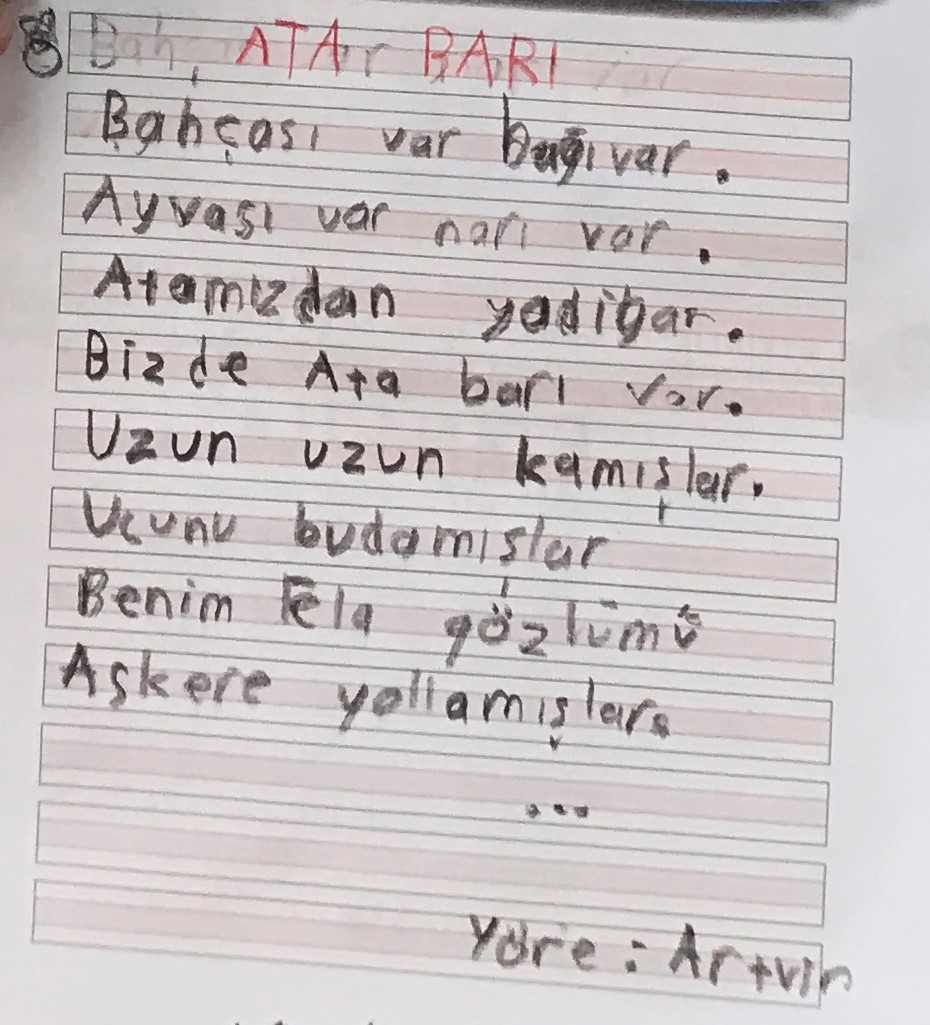 ATA BARI
Bahçası var bağı var.
Ayvası var narı var.
Atamızdan yadigar.
Bizde Ata barı var.
Uzun uzun kamışlar.
Ucunu budamışlar
Benim Ela gözlümü
Askere yollamışlar.
...
Yöre : Artvin